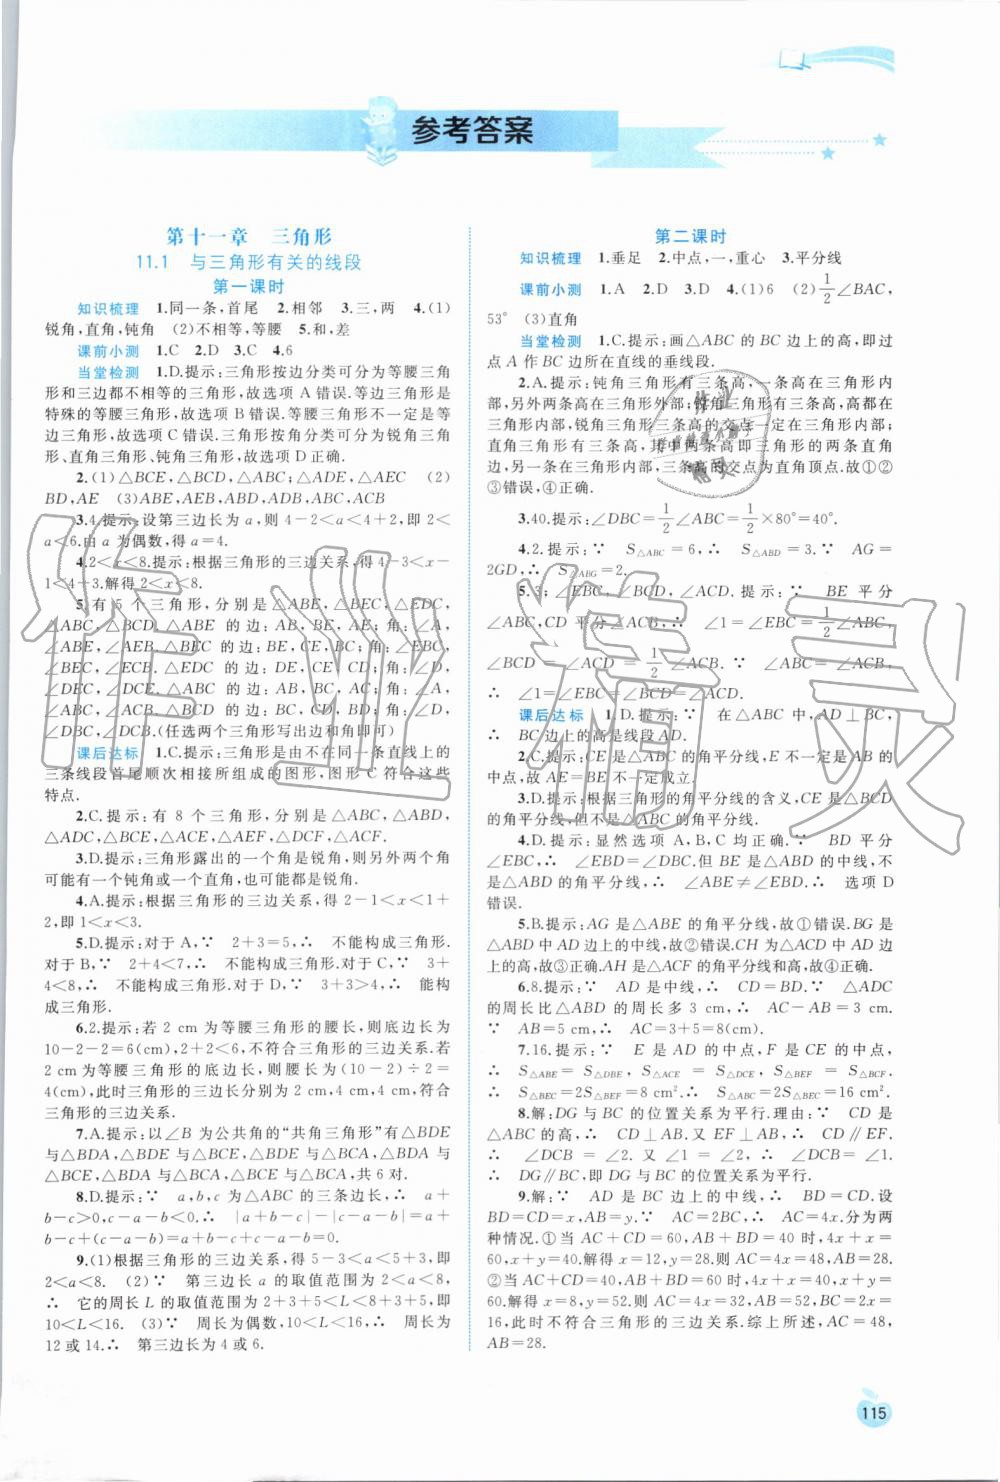 参考答案
第十一章 三角形
11.1 与三角形有关的线段
第一课时
知识梳理 1.同一条,首尾 2.相邻 3.三,两 4.(1)
锐角,直角,钝角 (2)不相等,等腰 5.和,差
课前小测 1.C 2.D 3.C 4.6
当堂检测 1.D.提示:三角形按边分类可分为等腰三角
形和三边都不相等的三角形,故选项A错误.等边三角形是
特殊的等腰三角形,故选项B错误.等腰三角形不一定是等
边三角形,故选项C错误.三角形按角分类可分为锐角三角
形、直角三角形、钝角三角形,故选项D正确.
2.(1)△BCE,△BCD,△ABC;△ADE,△AEC (2)
BD,AE (3)ABE,AEB,ABD,BDA,ABC,ACB
3.4.提示:设第三边长为a,则4-2<a<4+2,即2<
a<6.由a为偶数,得a=4.
4.2<x<8.提示:根据三角形的三边关系,得4-3<x-
1<4+3.解得2<x<8.
5.有5个三角形,分别是△ABE,△BEC,△EDC,
△ABC,△BCD.△ABE的边:AB,BE,AE;角:∠A,
∠ABE,∠AEB.△BCE的边:BE,CE,BC;角:∠BEC,
∠BCE,∠ECB.△CDE的边:DE,CE,CD;角:∠D,
∠DEC,∠DCE.△ABC的边:AB,BC,AC;角:∠A,
∠ABC,∠ACB.△DBC的边:CD,BC,BD;角:∠D,
∠DBC,∠DCB.(任选两个三角形写出边和角即可)
课后达标 1.C.提示:三角形是由不在同一条直线上的
三条线段首尾顺次相接所组成的图形,图形C符合这些
特点.
2.C.提示:有8个三角形,分别是△ABC,△ABD,
△ADC,△BCE,△ACE,△AEF,△DCF,△ACF.
3.D.提示:三角形露出的一个角是锐角,则另外两个角
可能有一个钝角或一个直角,也可能都是锐角.
4.A.提示:根据三角形的三边关系,得2-1<x<1+
2,即1<x<3.
5.D.提示:对于A,∵ 2+3=5,∴ 不能构成三角形.
对于B,∵ 2+4<7,∴ 不能构成三角形.对于C,∵ 3+
4<8,∴ 不能构成三角形.对于D,∵ 3+3>4,∴ 能构
成三角形.
6.2.提示:若2 cm为等腰三角形的腰长,则底边长为
10-2-2=6(cm),2+2<6,不符合三角形的三边关系.若
2 cm为等腰三角形的底边长,则腰长为(10-2)÷2=
4(cm),此时三角形的三边长分别为2 cm,4 cm,4 cm,符合
三角形的三边关系.
7.A.提示:以∠B为公共角的“共角三角形”有△BDE
与△BDA,△BDE与△BCE,△BDE与△BCA,△BDA与
△BCE,△BDA与△BCA,△BCE与△BCA,共6对.
8.D.提示:∵ a,b,c为△ABC的三条边长,∴ a+
b-c>0,c-a-b<0.∴ |a+b-c|-|c-a-b|=a+
b-c+(c-a-b)=a+b-c+c-a-b=0.
9.(1)根据三角形的三边关系,得5-3<a<5+3,即
2<a<8. (2)∵ 第三边长a的取值范围为2<a<8,
∴ 它的周长L的取值范围为2+3+5<L<8+3+5,即
10<L<16. (3)∵ 周长为偶数,10<L<16,∴ 周长为
12或14.∴ 第三边长为4或6.
第二课时
知识梳理 1.垂足 2.中点,一,重心 3.平分线
课前小测 1.A 2.D 3.D 4.(1)6 (2)1/2∠BAC,
53° (3)直角
当堂检测 1.C.提示:画△ABC的BC边上的高,即过
点A作BC边所在直线的垂线段.
2.A.提示:钝角三角形有三条高,一条高在三角形内
部,另外两条高在三角形外部;锐角三角形有三条高,高都在
三角形内部,锐角三角形三条高的交点一定在三角形内部;
直角三角形有三条高,其中两条高即三角形的两条直角
边,一条高在三角形内部,三条高的交点为直角顶点.故①②
③错误,④正确.
3.40.提示:∠DBC=1/2∠ABC=1/2×80°=40°.
4.2.提示:∵ S△ABC=6,∴ S△ABD=3.∵ AG=
2GD,∴ S△ABG=2.
5.3;∠EBC,∠BCD,∠ACD.提示:∵ BE平分
∠ABC,CD平分∠ACB,∴ ∠1=∠EBC=1/2∠ABC,
∠BCD=∠ACD=1/2∠ACB.∵ ∠ABC=∠ACB,
∴ ∠1=∠EBC=∠BCD=∠ACD.
课后达标 1.D.提示:∵ 在△ABC中,AD⊥BC,
∴ BC边上的高是线段AD.
2.C.提示:CE是△ABC的角平分线,E不一定是AB的
中点,故AE=BE不一定成立.
3.D.提示:根据三角形的角平分线的含义,CE是△BCD
的角平分线,但不是△ABC的角平分线.
4.D.提示:显然选项A,B,C均正确.∵ BD平分
∠EBC,∴ ∠DBE=∠DBC.但BE是△ABD的中线,不
是△ABD的角平分线,∴ ∠ABE≠∠EBD.∴ 选项D
错误.
5.B.提示:AG是△ABE的角平分线,故①错误.BG是
△ABD中AD边上的中线,故②错误.CH为△ACD中AD边
上的高,故③正确.AH是△ACF的角平分线和高,故④正确.
6.8.提示:∵ AD是中线,∴ CD=BD.∵ △ADC
的周长比△ABD的周长多3 cm,∴ AC-AB=3 cm.
∵ AB=5 cm,∴ AC=3+5=8(cm).
7.16.提示:∵ E是AD的中点,F是CE的中点,
∴ S△ABE=S△DBE,S△ACE=S△DCE,S△BEF=S△BCF.
∴ S△BEC=2S△BEF=8 cm².∴ S△ABC=2S△BEC=16 cm².
8.解:DG与BC的位置关系为平行.理由:∵ CD是
△ABC的高,∴ CD⊥AB.又EF⊥AB,∴ CD∥EF.
∴ ∠DCB=∠2.又∠1=∠2,∴ ∠DCB=∠1.
∴ DG∥BC,即DG与BC的位置关系为平行.
9.解:∵ AD是BC边上的中线,∴ BD=CD.设
BD=CD=x,AB=y.∵ AC=2BC,∴ AC=4x.分为两
种情况.①当AC+CD=60,AB+BD=40时,则4x+x=
60,x+y=40.解得x=12,y=28.则AC=4x=48,AB=28.
②当AC+CD=40,AB+BD=60时,则4x+x=40,x+y=
60.解得x=8,y=52.则AC=4x=32,AB=52,BC=2x=
16,此时不符合三角形的三边关系.综上所述,AC=48,
AB=28.
115
作业精灵